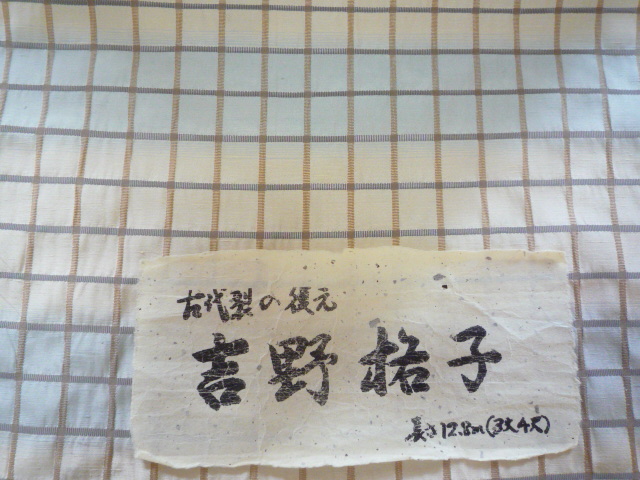 古代裂の復元
吉野格子
長さ12.8m(3丈4尺)